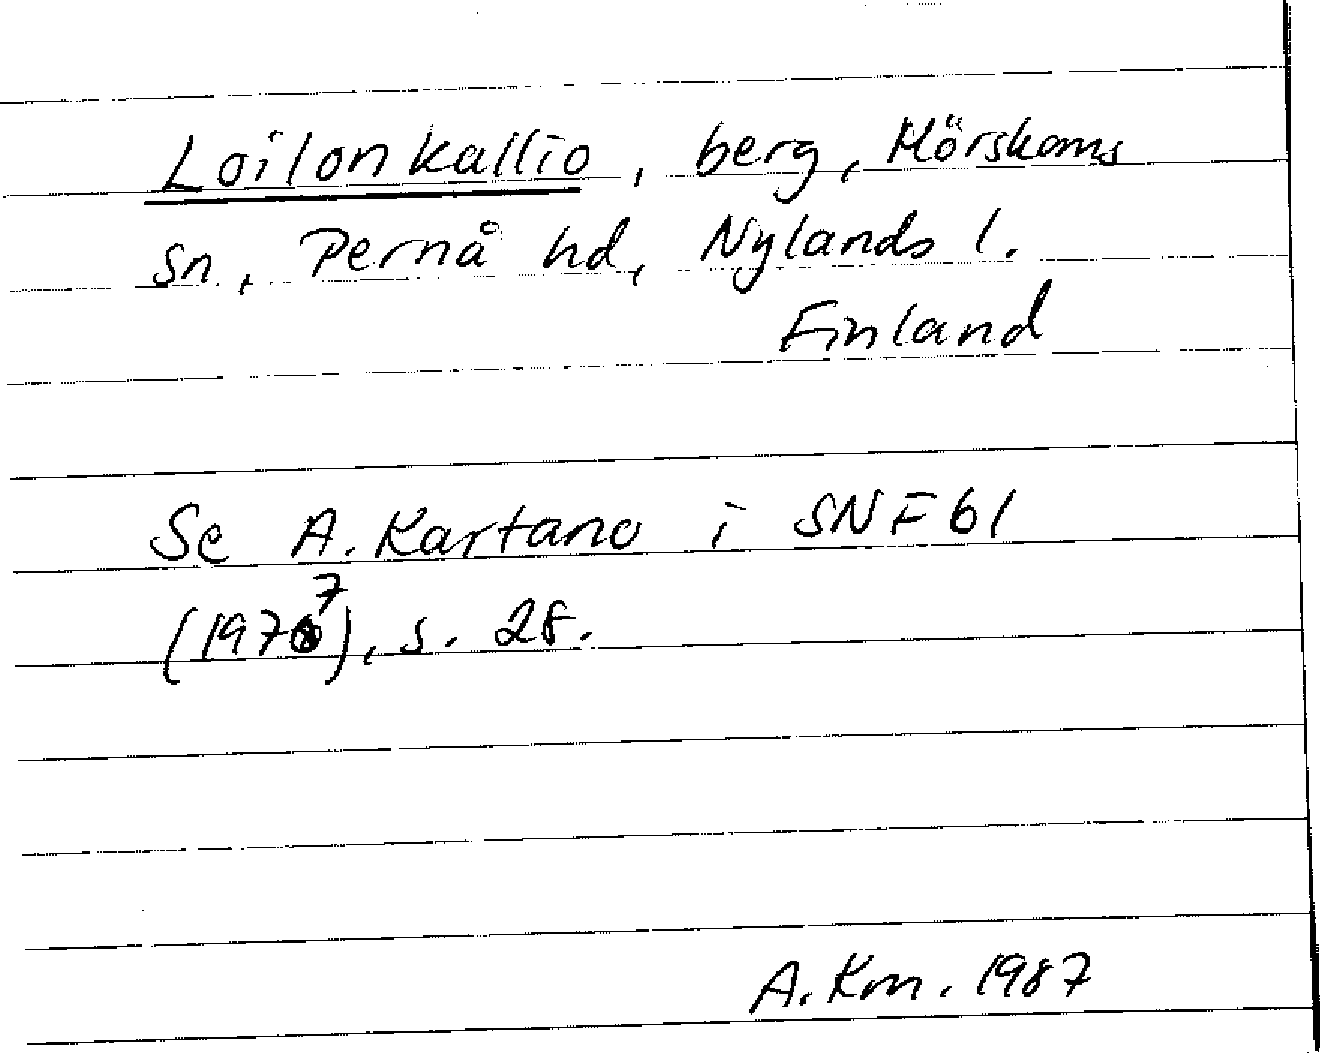 Loilonkallio, berg, Mörskoms
sn., Pernå hd, Nylands l.
Finland
Se A. Kartano i SNF 61
(1977), s. 28.
A. Km. 1987